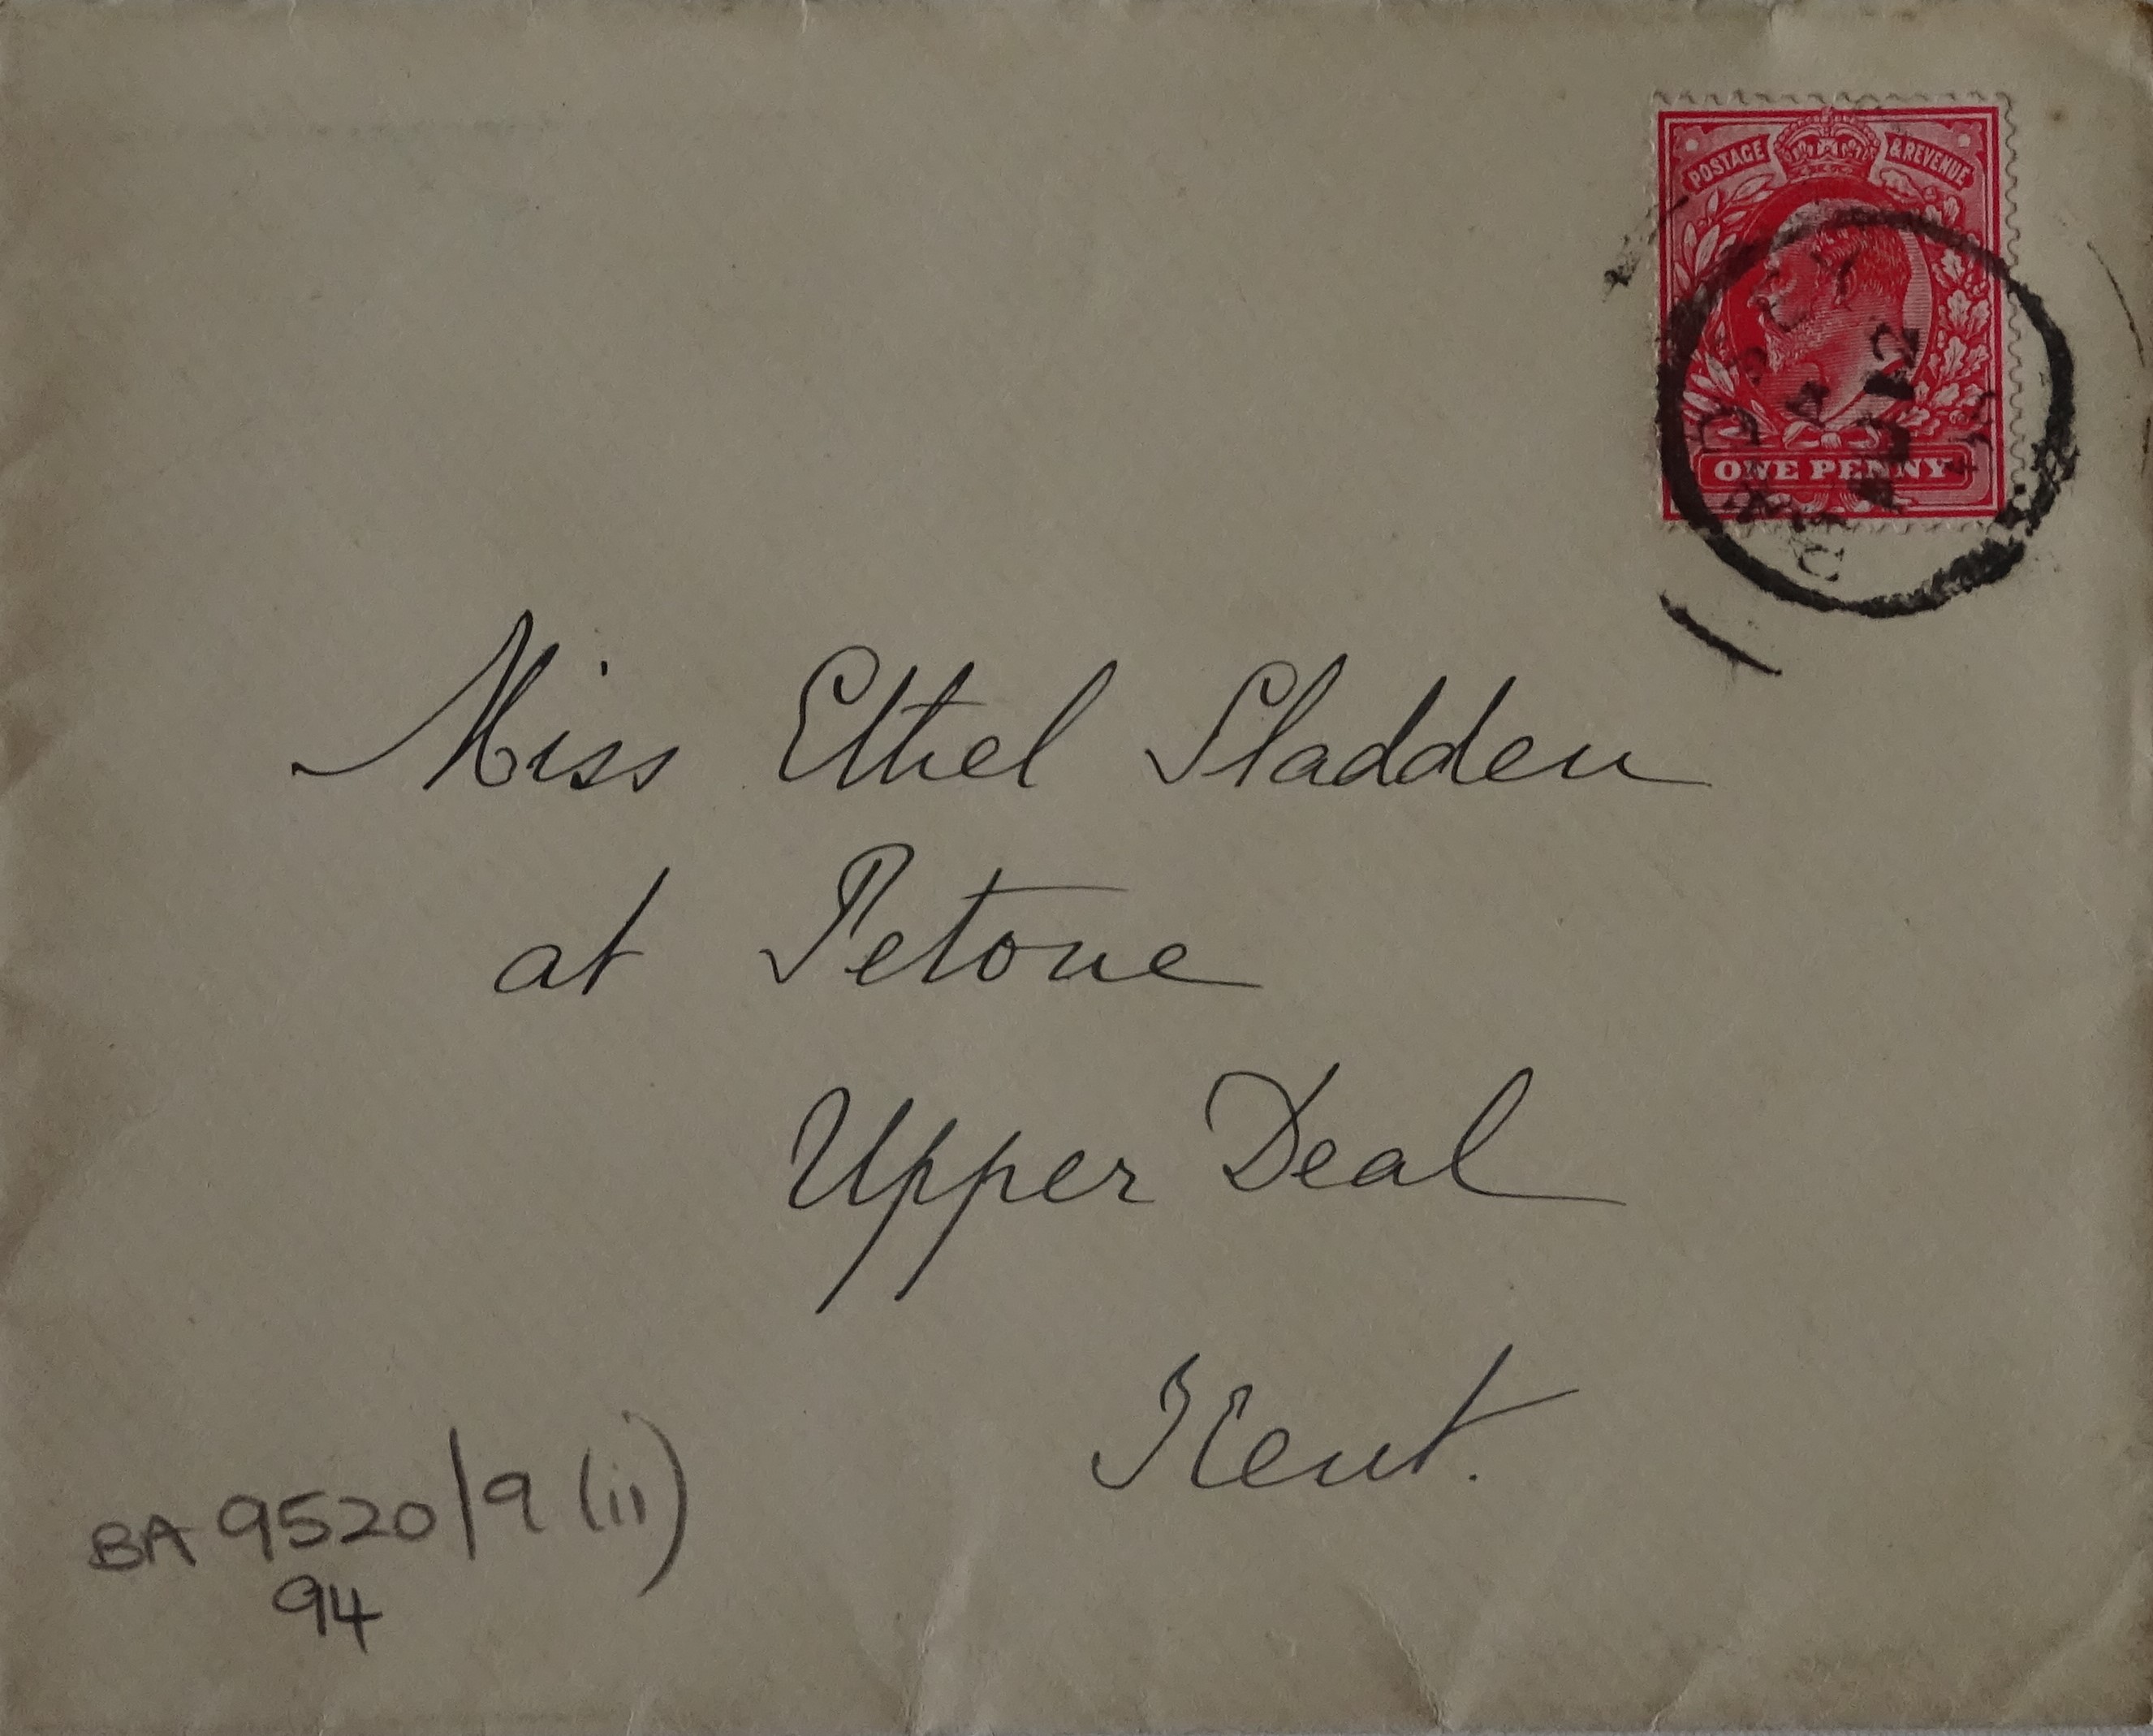 POSTAGE & REVENUE
ONE PENNY
Miss Ethel Sladden
at Petone
Upper Deal
Kent.
BA 9520/9 (ii)
94